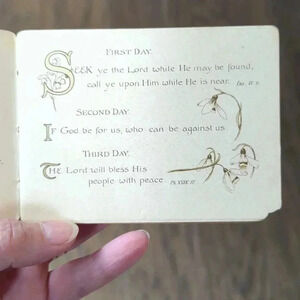 FIRST DAY.
SEEK ye the Lord while He may be found,
call ye upon Him while He is near.
SECOND DAY.
IF God be for us, who can be against us
THIRD DAY.
THE Lord will bless His
people with peace